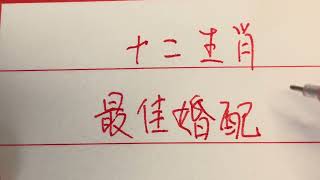 十二生肖
最佳婚配